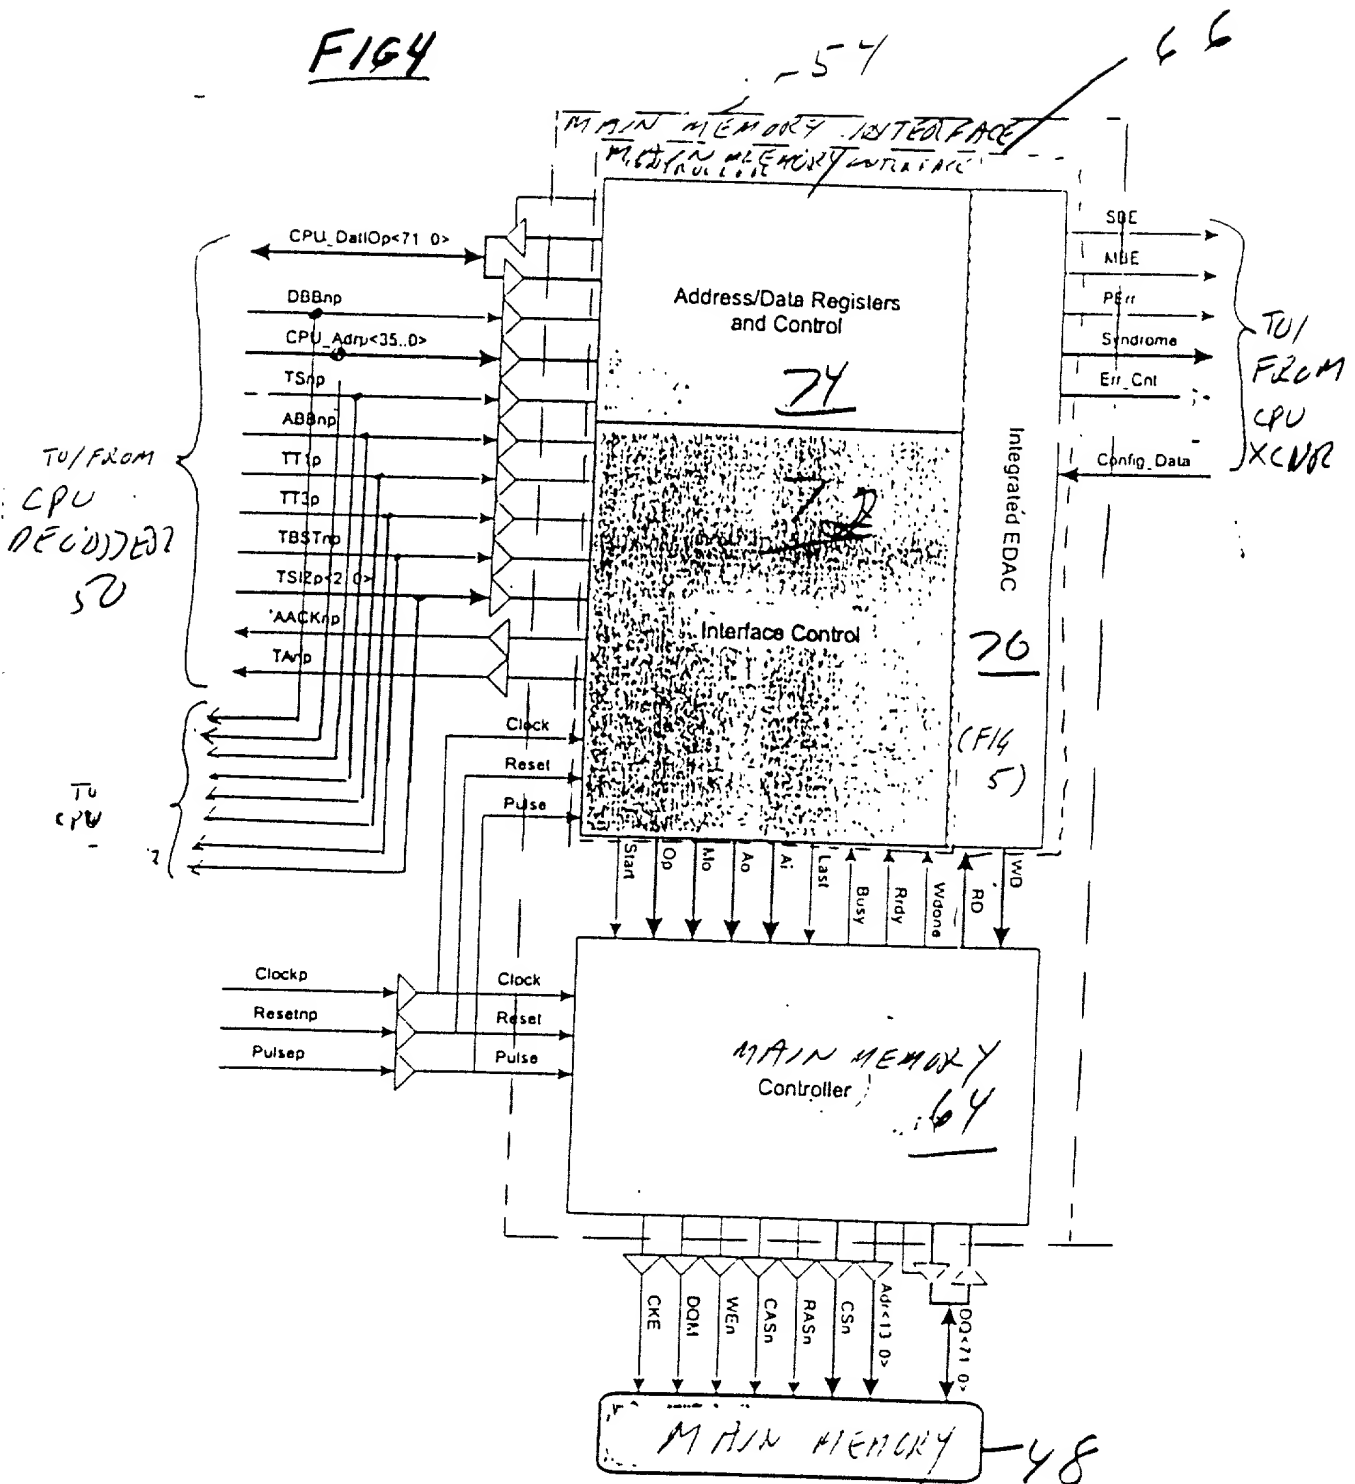 FIG4
54
66
MAIN MEMORY INTERFACE
MAIN MEMORY INTERFACE
CONTROLLER
CPU_DatIOp<71 0>
DBBnp
CPU_Adrp<35..0>
TSnp
ABBnp
TT1p
TT3p
TBSTnp
TSIZp<2 0>
AACKnp
TAnp
TO/FROM
CPU
DECODER
50
TO
CPU
Address/Data Registers
and Control
74
72
Interface Control
Integrated EDAC
70
(FIG
5)
SBE
MBE
PErr
Syndrome
Err_Cnt
Config_Data
TO/
FROM
CPU
XCNR
Clock
Reset
Pulse
Start
Op
Mo
Ao
Ai
Last
Busy
Rrdy
Wdone
RD
WD
Clockp
Resetnp
Pulsep
Clock
Reset
Pulse
MAIN MEMORY
Controller
64
CKE
DQM
WEn
CASn
RASn
CSn
Adr<13 0>
DQ<71 0>
MAIN MEMORY
48